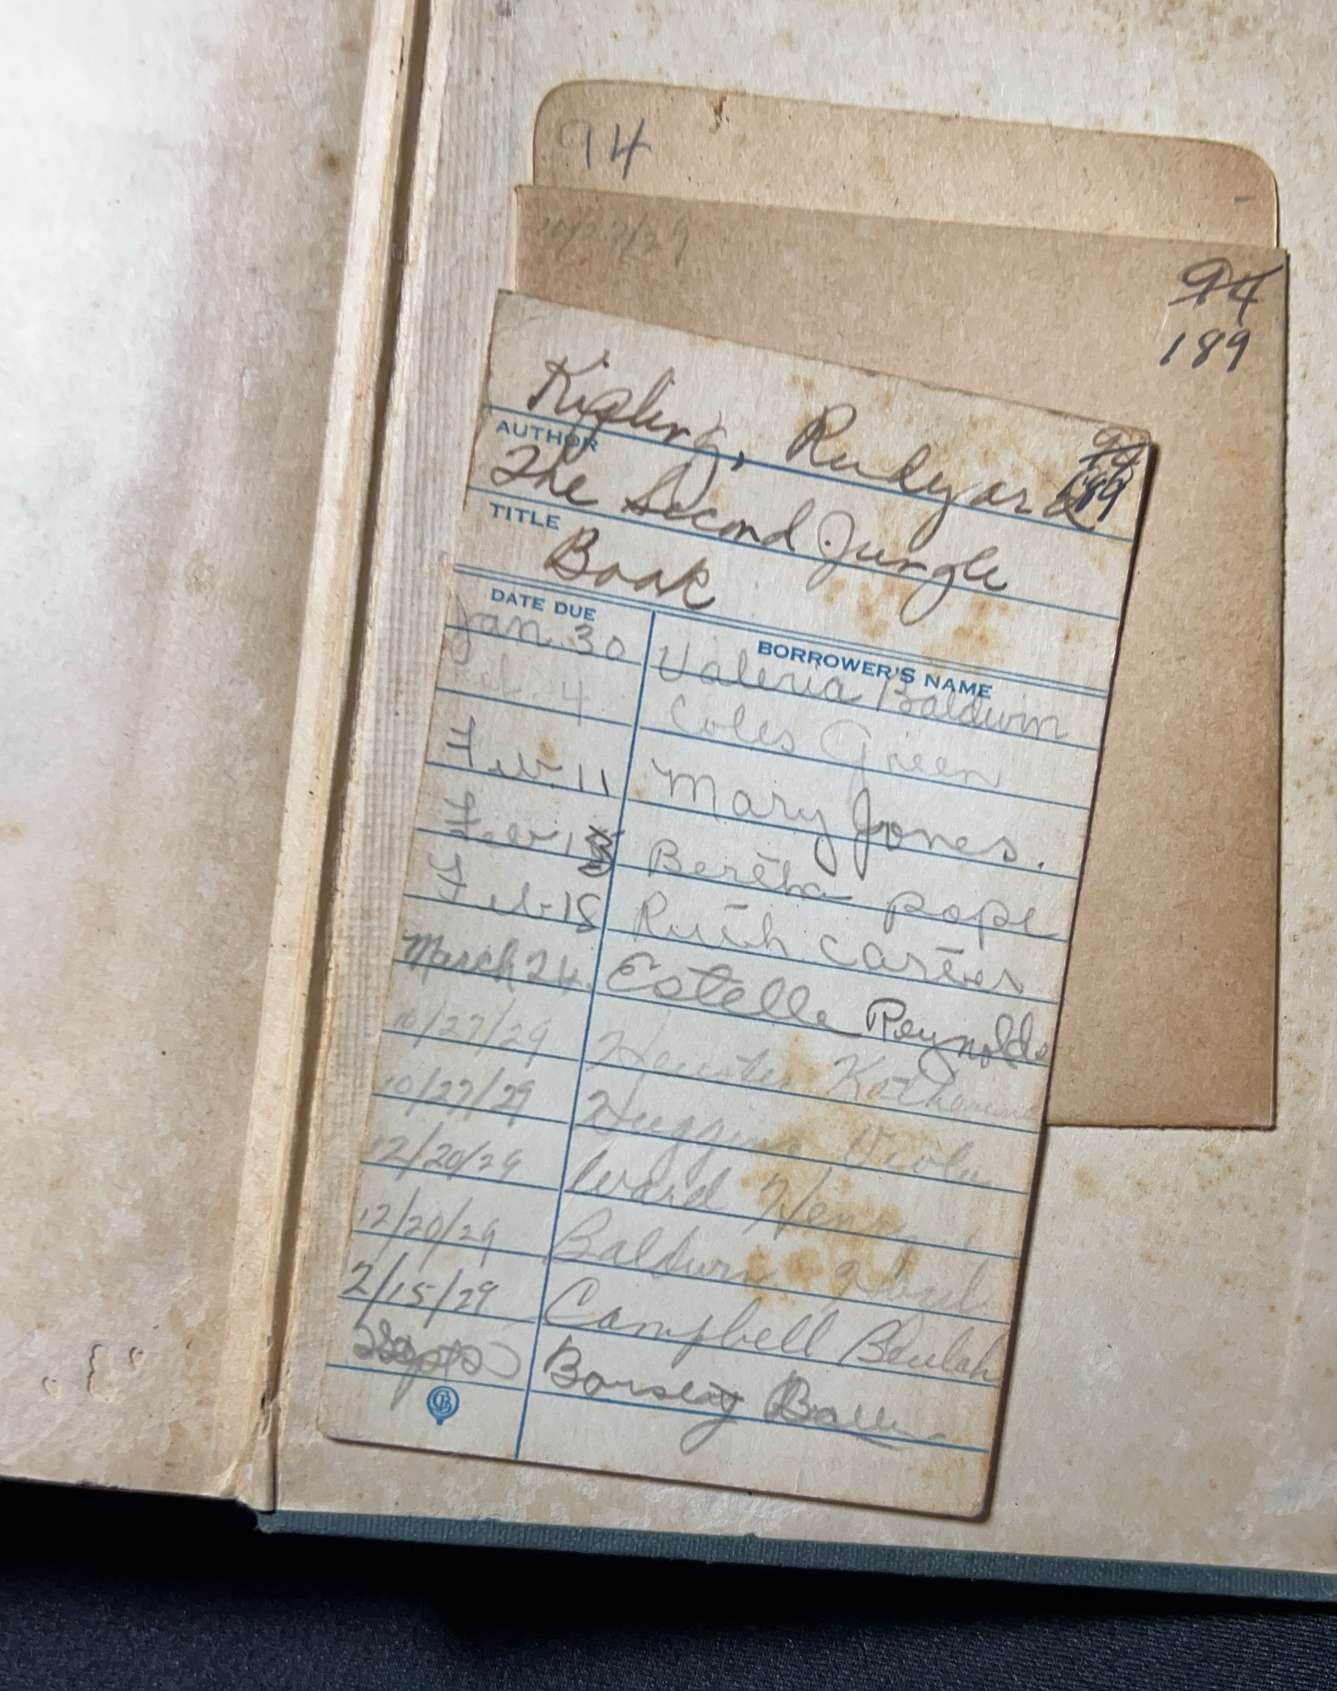 94
10/27/29
94
189
Kipling, Rudyard
94
189
AUTHOR
The Second Jungle
TITLE
Book
DATE DUE BORROWER'S NAME
Jan. 30 Valeria Baldwin
Feb. 4 Coles Green
Feb. 11 Mary Jones.
Feb 18 Bertha pope
Feb 18 Ruth Carter
March 24 Estelle Reynolds
10/27/29 Katharine
10/27/29 Huggins Viola
12/20/29 Ward Henry
12/20/29 Baldwin
2/15/29 Campbell Beulah
Ball
GB